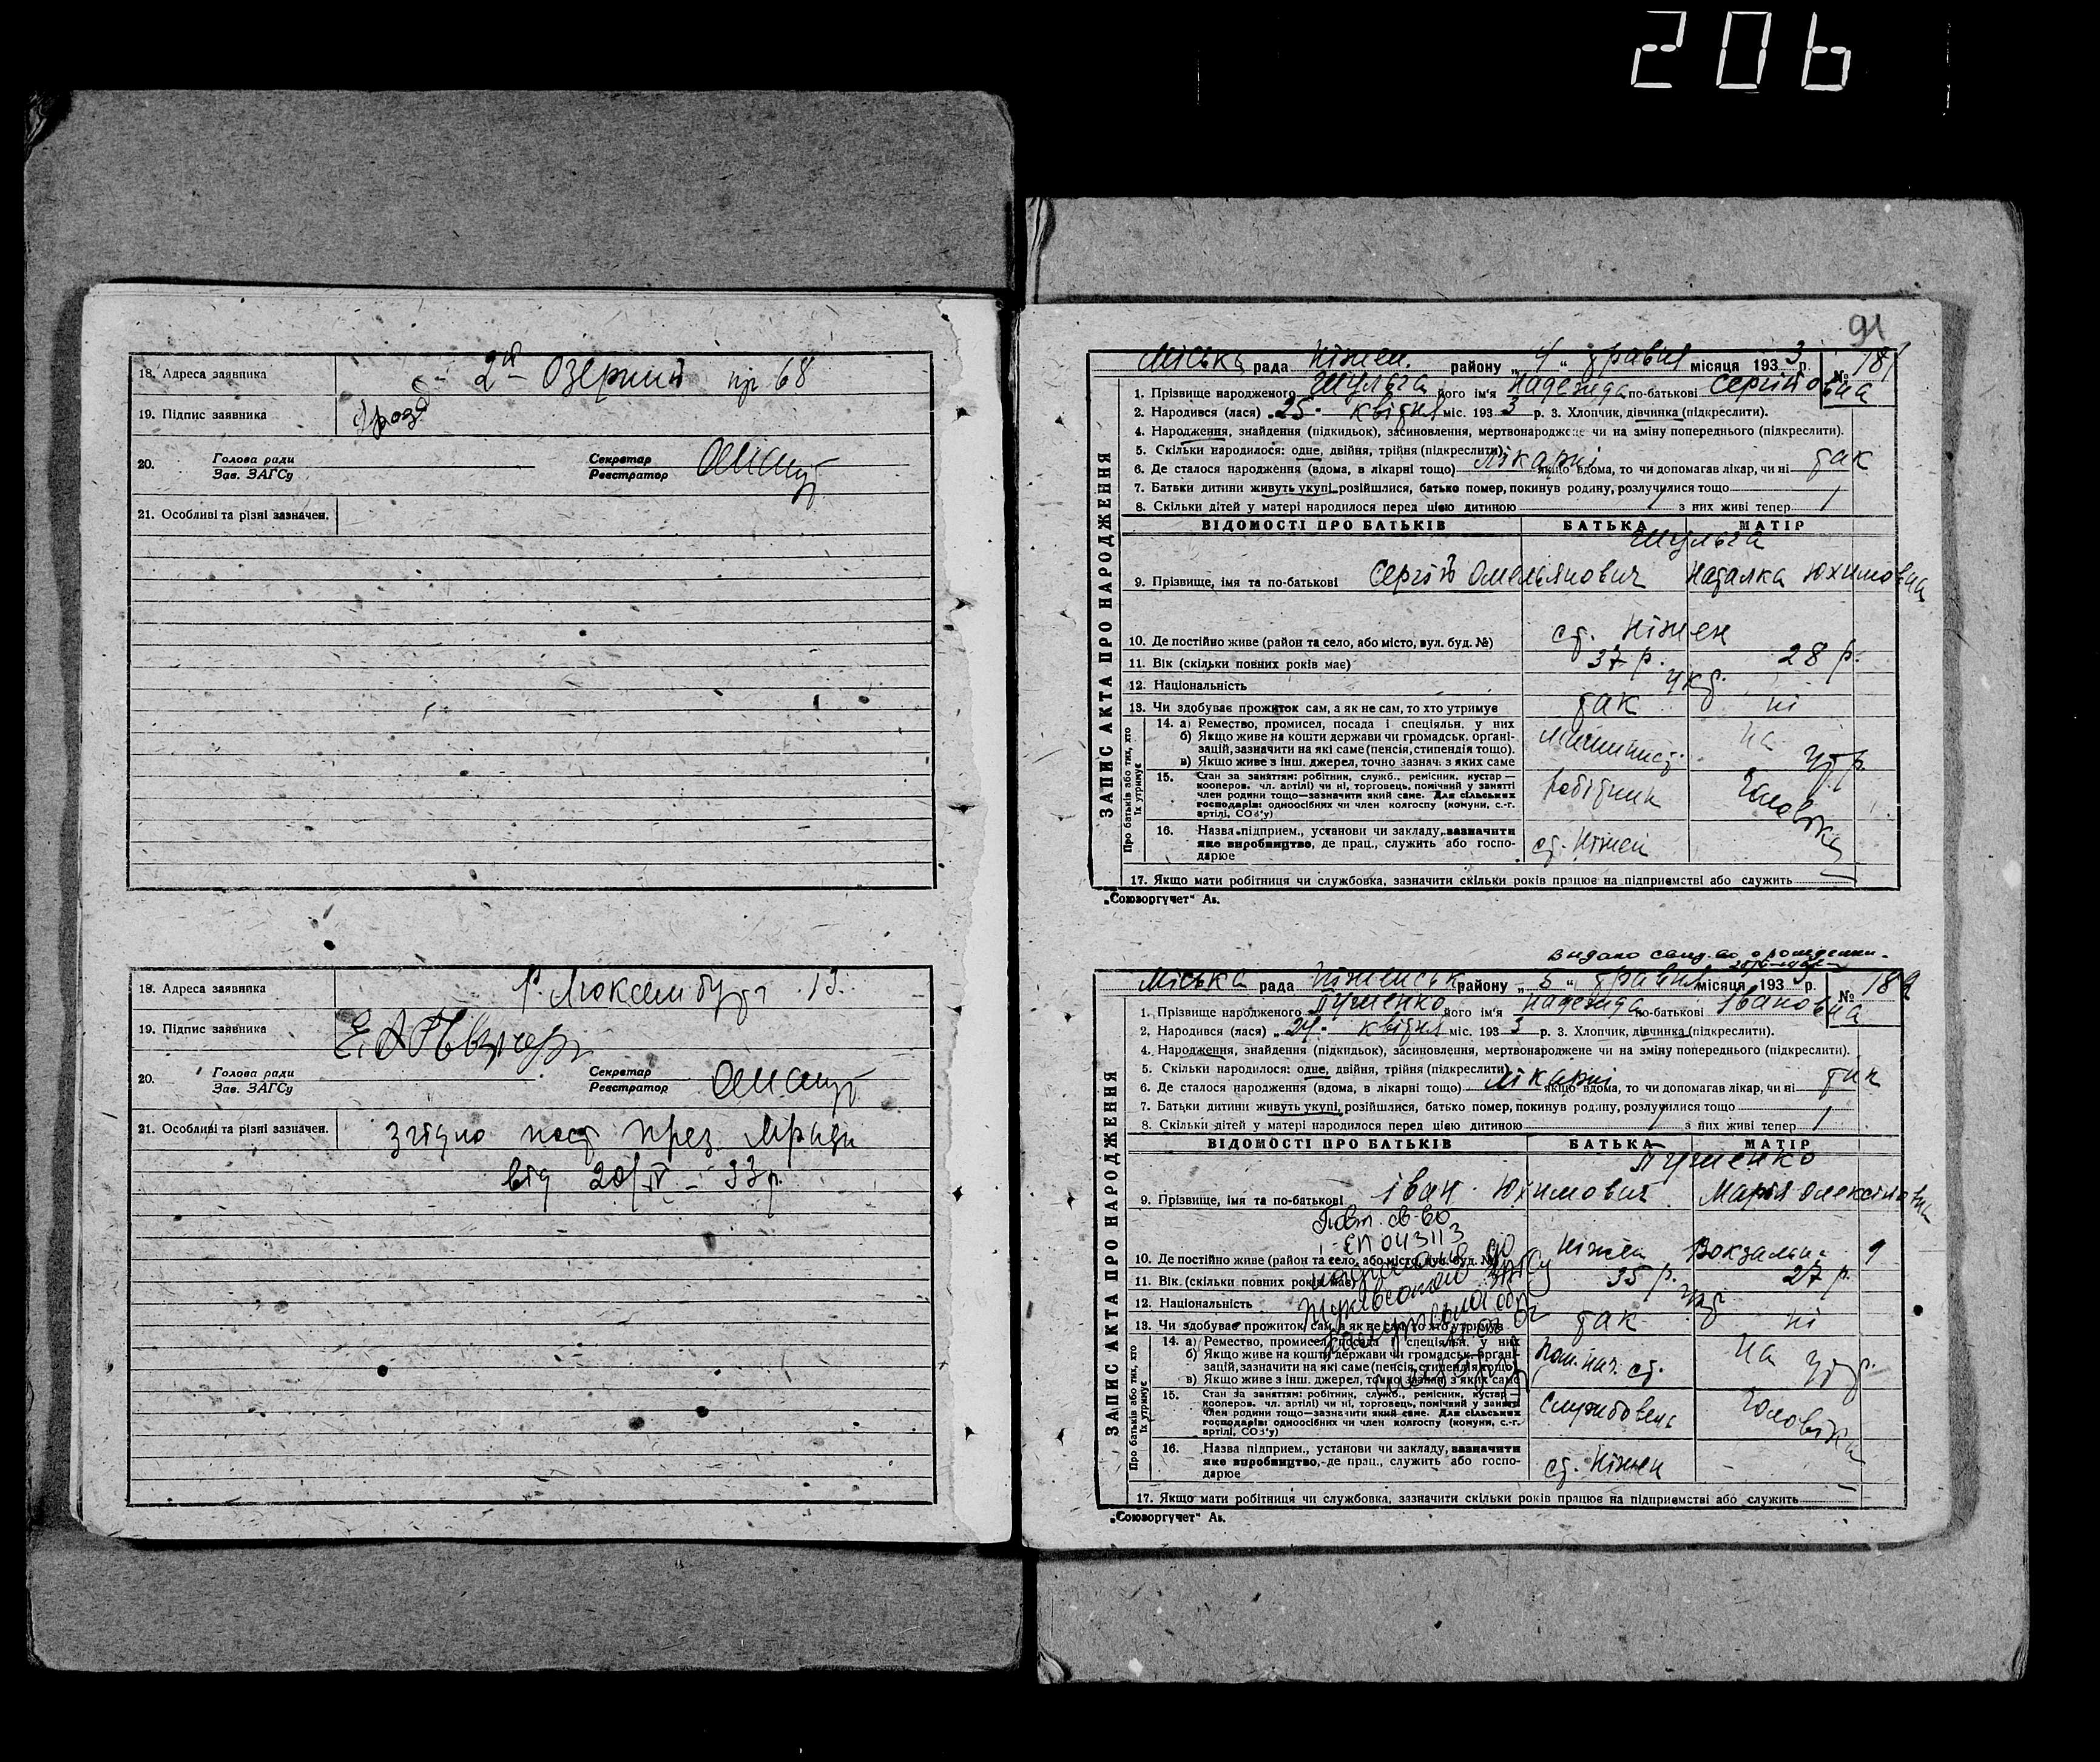 206
18. Адреса заявника 2й Озерний пр 68
19. Підпис заявника
20. Голова ради Секретар
Зав. ЗАГСу Реєстратор
21. Особливі та різні зазначен.
18. Адреса заявника Р. Люксембург 13.
19. Підпис заявника
20. Голова ради Секретар
Зав. ЗАГСу Реєстратор
21. Особливі та різні зазначен. Згідно пост през. Мради
від 20/IV – 33 р.
91
ЗАПИС АКТА ПРО НАРОДЖЕННЯ
Міська рада Ніжен. району „ 4 “ травня місяця 1933 р. № 181
1. Прізвище народженого Шульга його ім'я Надежда по-батькові Сергіїовна
2. Народився (лася) „ 25 “ квітня міс. 193 3 р. 3. Хлопчик, дівчинка (підкреслити).
4. Народження, знайдення (підкидьок), засиновлення, мертвонароджене чи на зміну попереднього (підкреслити).
5. Скільки народилося: одне, двійня, трійня (підкреслити)
6. Де сталося народження (вдома, в лікарні тощо) лікарні якщо вдома, то чи допомагав лікар, чи ні так
7. Батьки дитини живуть укупі, розійшлися, батько помер, покинув родину, розлучилися тощо
8. Скільки дітей у матері народилося перед цією дитиною 1 з них живі тепер 1
ВІДОМОСТІ ПРО БАТЬКІВ БАТЬКА МАТІР
Шульга
9. Прізвище, імя та по-батькові Сергій Омельянович Наталка Юхимовна
10. Де постійно живе (район та село, або місто, вул. буд. №) ст. Ніжен
11. Вік (скільки повних років має) 37 р. 28 р.
12. Національність укр.
13. Чи здобуває прожиток сам, а як не сам, то хто утримує так ні
Про батьків або тих, хто їх утримує
14. а) Ремество, промисел, посада і спеціяльн. у них
б) Якщо живе на кошти держави чи громадськ. органі-
зацій, зазначити на які саме (пенсія, стипендія тощо).
в) Якщо живе з інш. джерел, точно зазнач. з яких саме
Машиніст. на утр.
15. Стан за заняттям: робітник, служб., ремісник, кустар —
кооперов. чл. артілі) чи ні, торговець, помічний у занятті
член родини тощо—зазначити який саме. Для сільських
господарів: одноосібних чи член колгоспу (комуни, с.-г.
артілі, СОЗ'у)
робітник чоловіка
16. Назва підприєм., установи чи закладу, зазначити
яке виробництво, де прац., служить або госпо-
дарює
ст. Ніжен
17. Якщо мати робітниця чи службовка, зазначити скільки років працює на підприємстві або служить
„Союзоргучет“ Ав.
Видано свид-во о рождении
ЗАПИС АКТА ПРО НАРОДЖЕННЯ
Міська Ніженськ району „ 5 “ травня місяця 1933 р. № 182
1. Прізвище народженого його ім'я Надежда по-батькові Івановна
2. Народився (лася) „ 24 “ квітня міс. 193 3 р. 3. Хлопчик, дівчинка (підкреслити).
4. Народження, знайдення (підкидьок), засиновлення, мертвонароджене чи на зміну попереднього (підкреслити).
5. Скільки народилося: одне, двійня, трійня (підкреслити)
6. Де сталося народження (вдома, в лікарні тощо) лікарні якщо вдома, то чи допомагав лікар, чи ні так
7. Батьки дитини живуть укупі, розійшлися, батько помер, покинув родину, розлучилися тощо
8. Скільки дітей у матері народилося перед цією дитиною 1 з них живі тепер 1
ВІДОМОСТІ ПРО БАТЬКІВ БАТЬКА МАТІР
9. Прізвище, імя та по-батькові Іван Юхимович Марія Олексіївна
Повт. св-во
І-ЕП 043113
10. Де постійно живе (район та село, або місто, вул. буд. №) Ніжен Вокзальн. 9
11. Вік (скільки повних років має) 35 р. 27 р.
12. Національність укр
13. Чи здобуває прожиток сам, а як не сам, то хто утримує так ні
Про батьків або тих, хто їх утримує
14. а) Ремество, промисел, посада і спеціяльн. у них
б) Якщо живе на кошти держави чи громадськ. органі-
зацій, зазначити на які саме (пенсія, стипендія тощо)
в) Якщо живе з інш. джерел, точно зазнач. з яких саме
Пом. нач. ст. на утр.
15. Стан за заняттям: робітник, служб., ремісник, кустар —
кооперов. чл. артілі) чи ні, торговець, помічний у занятті
член родини тощо—зазначити який саме. Для сільських
господарів: одноосібних чи член колгоспу (комуни, с.-г.
артілі, СОЗ'у)
Службовець чоловіка
16. Назва підприєм., установи чи закладу, зазначити
яке виробництво, де прац., служить або госпо-
дарює
ст. Ніжен
17. Якщо мати робітниця чи службовка, зазначити скільки років працює на підприємстві або служить
„Союзоргучет“ Ав.